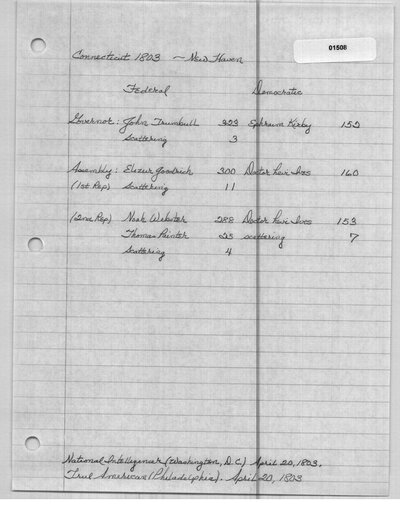 01508
Connecticut 1803 ~ New Haven
Federal Democratic
Governor: John Trumbull 323 Ephraim Kirby 152
Scattering 3
Assembly: Elizur Goodrich 300 Doctor Levi Ives 160
(1st Rep) Scattering 11
(2nd Rep) Noah Webster 288 Doctor Levi Ives 153
Thomas Painter 25 scattering 7
Scattering 4
National Intelligencer (Washington, D.C.) April 20, 1803.
True American (Philadelphia). April 20, 1803